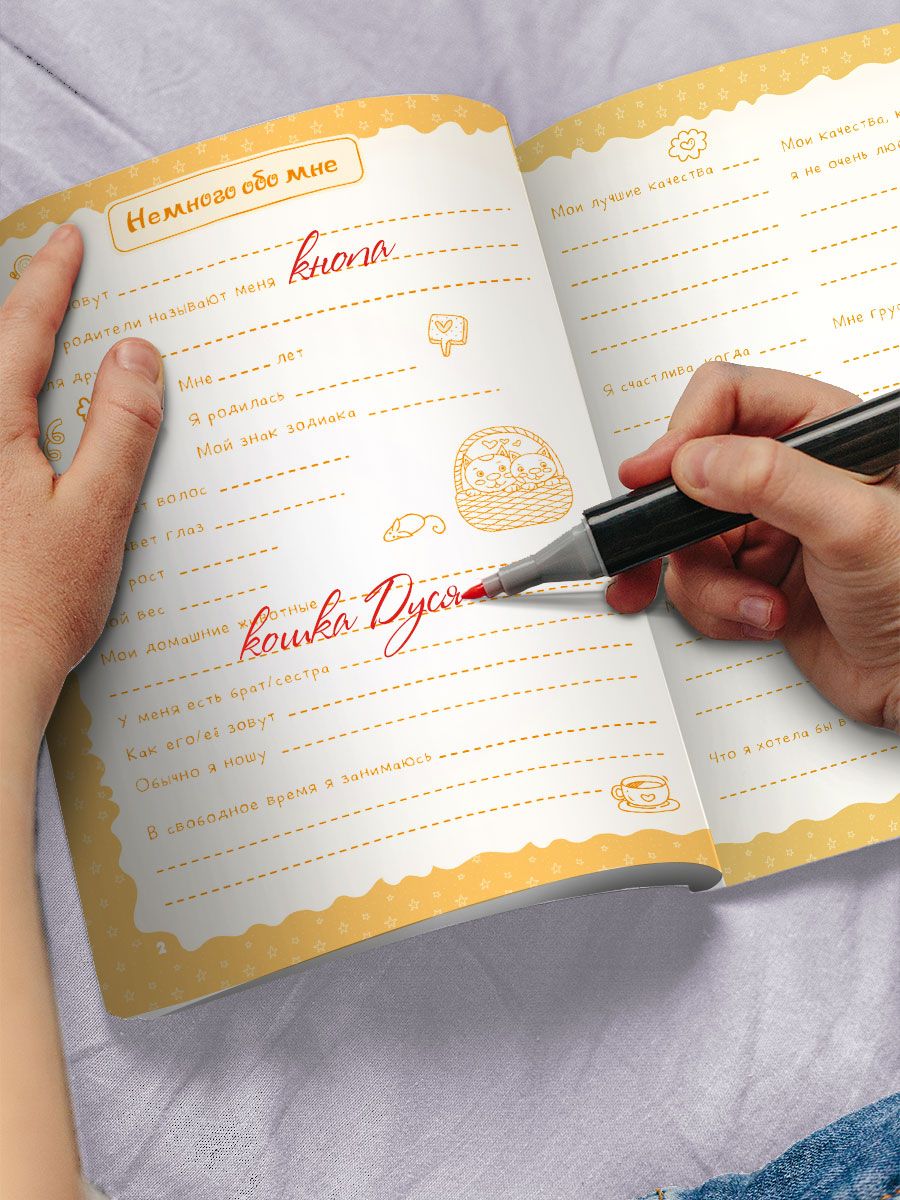 Немного обо мне
овут
родители называют меня кнопа
ля дру
Мне лет
Я родилась
Мой знак зодиака
ет волос
вет глаз
рост
ой вес
Мои домашние животные
кошка Дуся
У меня есть брат/сестра
Как его/её зовут
Обычно я ношу
В свободное время я занимаюсь
2
Мои лучшие качества
Я счастлива, когда
Мои качества, к
я не очень люб
Мне грус
Что я хотела бы в